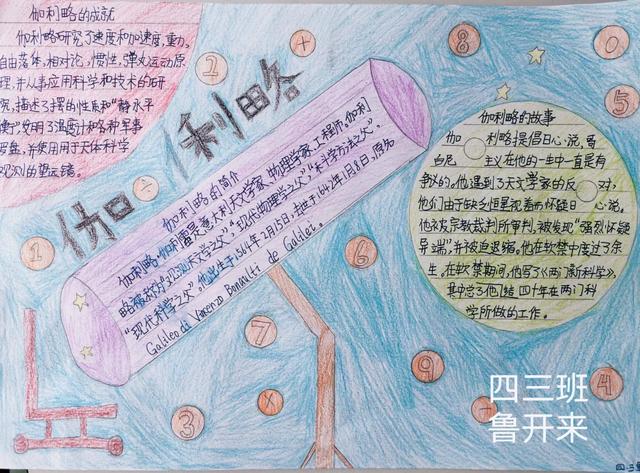 伽利略的成就
伽利略研究了速度和加速度,重力,
自由落体,相对论,惯性,弹丸运动原
理,并从事应用科学和技术的研
究,描述了摆的性质和“静水平
衡”发明了温度计和各种军事
罗盘,并使用用于天体科学
观测的望远镜。
伽利略
伽利略的简介
伽利略·伽利雷是意大利天文学家、物理学家、工程师,伽利
略被称为“观测天文学之父”“现代物理学之父”“科学方法之父”
“现代科学之父”。他出生于1564年2月15日,去世于1642年1月8日,原名
Galileo di Vincenzo Bonaulti de Galilei.
伽利略的故事
伽 利略提倡日心说,哥
白尼 主义在他的一生中一直是有
争议的。他遇到了天文学家的反 对,
他们由于缺乏恒星视差而怀疑日 心说。
他被宗教裁判所审判,被发现“强烈怀疑
异端”,并被迫退缩。他在软禁中度过了余
生。在软禁期间,他写了《两门新科学》,
其中总了他 四十年在两门科
学所做的工作。
2
+
8
0
5
÷
1
6
7
9
×
3
-
4
四三班
鲁开来